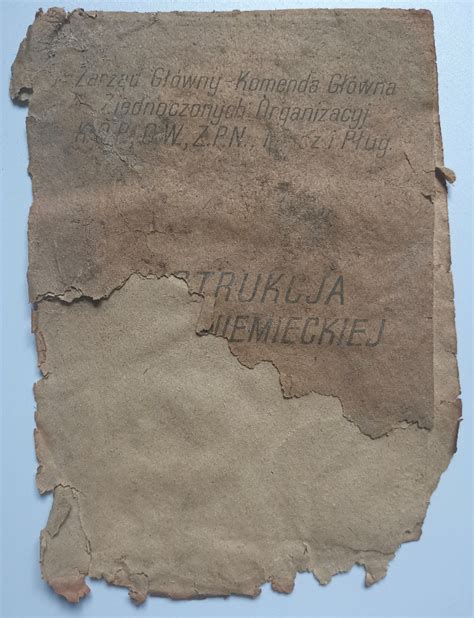 Zarząd Główny-Komenda Główna
Zjednoczonych Organizacyj
Z.P.N., i Pług.
STRUKCJA
NIEMIECKIEJ